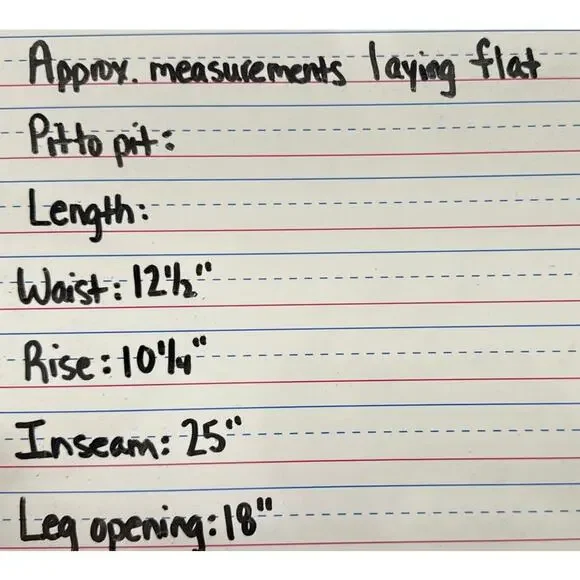 Approx. measurements laying flat
Pit to pit:
Length:
Waist: 12½"
Rise: 10¼"
Inseam: 25"
Leg opening: 18"